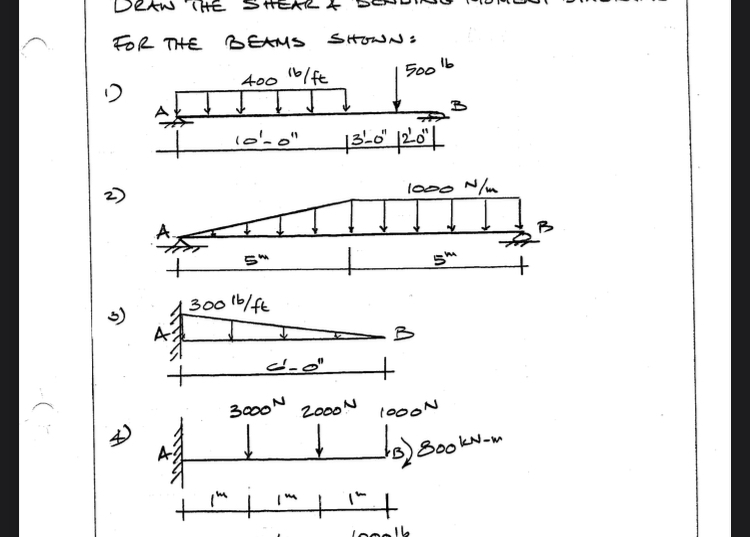 DRAW THE SHEAR & BENDING MOMENT
FOR THE BEAMS SHOWN:
1)
400 lb/ft
500 lb
A
B
10'-0"
3'-0"
2'-0"
2)
1000 N/m
A
B
5m
5m
3)
300 lb/ft
A
B
6'-0"
4)
3000N
2000N
1000N
A
B
800 kN-m
1m
1m
1m
1000 lb